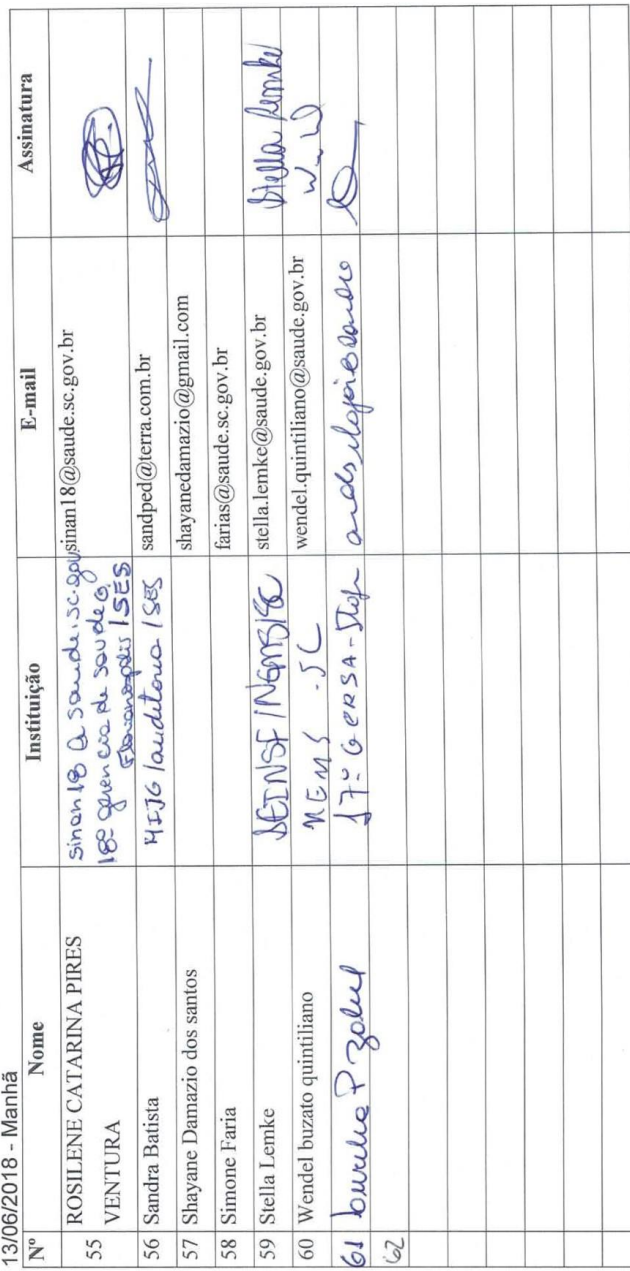 13/06/2018 - Manhã
Nº Nome Instituição E-mail Assinatura
55 ROSILENE CATARINA PIRES VENTURA sinan18@saude.sc.gov 18º gerencia de saude G. Florianopolis / SES sinan18@saude.sc.gov.br
56 Sandra Batista HIJG / auditoria / SES sandped@terra.com.br
57 Shayane Damazio dos santos shayanedamazio@gmail.com
58 Simone Faria farias@saude.sc.gov.br
59 Stella Lemke stella.lemke@saude.gov.br Stella Lemke
60 Wendel buzato quintiliano NEMS - SC wendel.quintiliano@saude.gov.br
61 P 17º GERSA
62